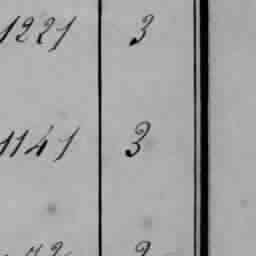 1221 3
1141 3